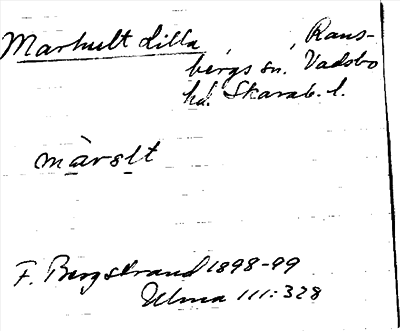 Marhult Lilla, Rans-
bergs sn. Vadsbo
hd. Skarab. l.
màrslt
F. Bergstrand 1898-99
Ulma 111:328